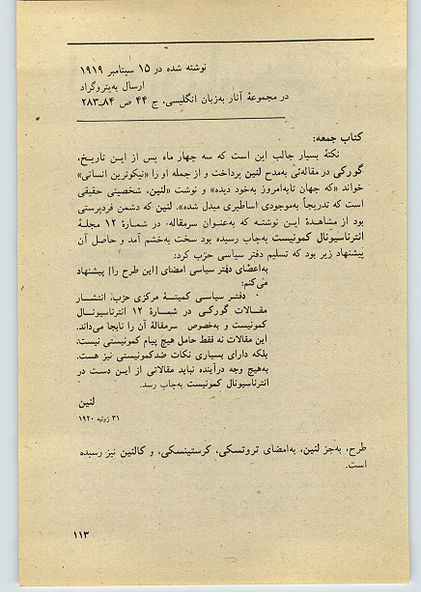 نوشته شده در ۱۵ سپتامبر ۱۹۱۹
ارسال به‌پتروگراد
در مجموعهٔ آثار به‌زبان انگلیسی، ج ۴۴ ص ۸۴ـ۲۸۳
کتاب جمعه:
نکتهٔ بسیار جالب این است که سه چهار ماه پس از این تاریخ،
گورکی در مقاله‌ئی به‌مدح لنین پرداخت و از جمله او را «نیکوترین انسانی»
خواند «که جهان تابه‌امروز به‌خود دیده» و نوشت «لنین، شخصیتی حقیقی
است که تدریجاً به‌موجودی اساطیری مبدل شده». لنین که دشمن فردپرستی
بود از مشاهدهٔ این نوشته که به‌عنوان سرمقاله، در شمارهٔ ۱۲ مجلهٔ
انترناسیونال کمونیست به‌چاپ رسیده بود سخت به‌خشم آمد و حاصل آن
پیشنهاد زیر بود که تسلیم دفتر سیاسی حزب کرد:
به‌اعضای دفتر سیاسی امضای [این طرح را] پیشنهاد
می‌کنم:
دفتر سیاسی کمیتهٔ مرکزی حزب، انتشار
مقالات گورکی در شمارهٔ ۱۲ انترناسیونال
کمونیست و به‌خصوص سرمقالهٔ آن را نابجا می‌داند.
این مقالات نه فقط حامل هیچ پیام کمونیستی نیست،
بلکه دارای بسیاری نکات ضدکمونیستی نیز هست.
به‌هیچ وجه درآینده نباید مقالاتی از این دست در
انترناسیونال کمونیست به‌چاپ رسد.
لنین
۳۱ ژوئیه ۱۹۲۰
طرح، به‌جز لنین، به‌امضای تروتسکی، کرستینسکی، و کالنین نیز رسیده
است.
۱۱۳